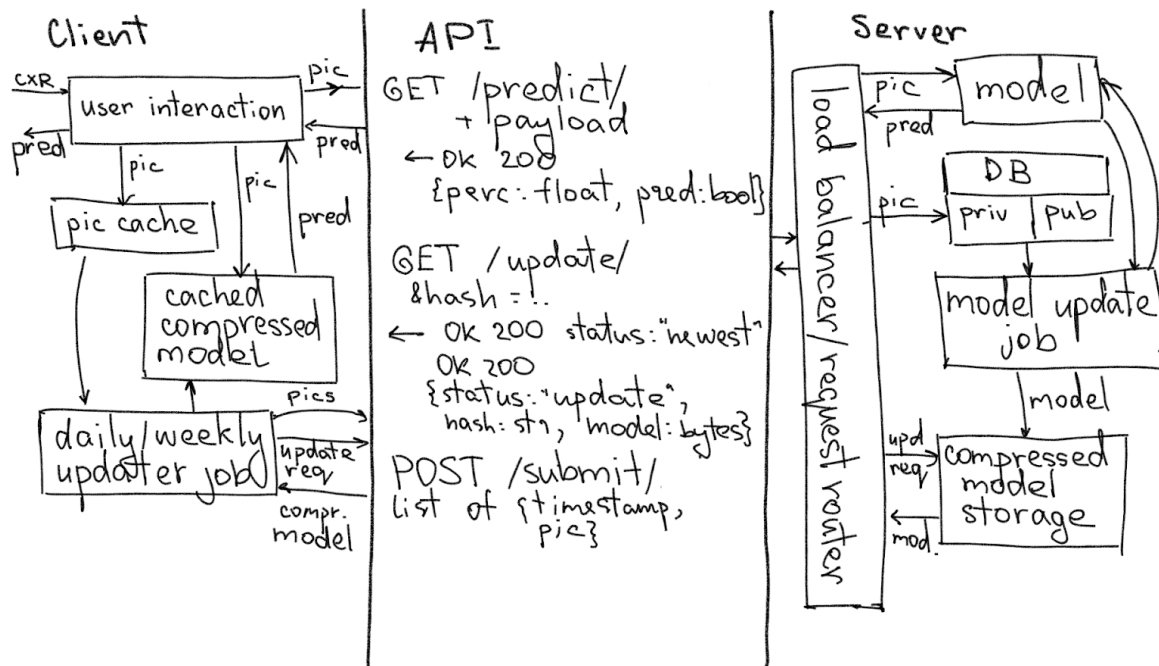 Client
CXR
pic
user interaction
pred
pred
pic
pic
pred
pic cache
cached
compressed
model
pics
daily/weekly
updater job
update
req
compr.
model
API
GET /predict/
+ payload
← OK 200
{perc: float, pred: bool}
GET /update/
&hash = !..
← OK 200 status: "newest"
OK 200
{status: "update",
hash: str, model: bytes}
POST /submit/
list of {timestamp,
pic}
Server
load balancer/request router
pic
pred
model
pic
DB
priv
pub
model update
job
model
upd
req
mod.
compressed
model
storage